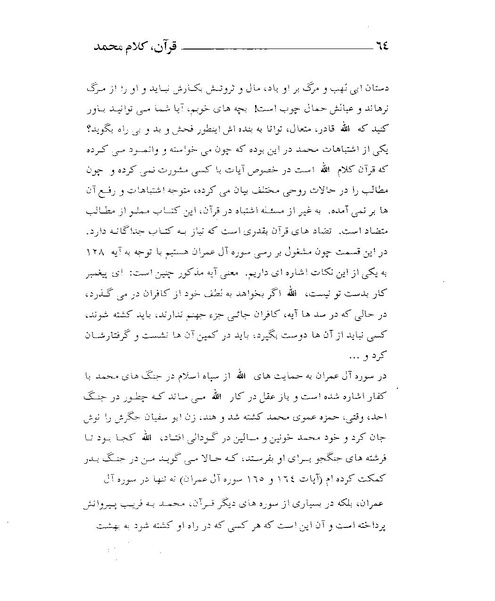 ٦٤ قرآن، کلام محمد
دستان ابی لهب و مرگ بر او باد، مال و ثروتش بکارش نیاید و او را از مرگ
نرهاند و عیالش حمال چوب است! بچه های خوبم، آیا شما می توانید باور
کنید که الله قادر، متعال، توانا به بنده اش اینطور فحش و بد و بی راه بگوید؟
یکی از اشتباهات محمد در این بوده که چون می خواسته و وانمود می کرده
که قرآن کلام الله است در خصوص آیات با کسی مشورت نمی کرده و چون
مطالب را در حالات روحی مختلف بیان می کرده، متوجه اشتباهات و رفع آن
ها بر نمی آمده. به غیر از مسئله اشتباه در قرآن، این کتاب مملو از مطالب
متضاد است. تضاد های قرآن بقدری است که نیاز به کتاب جداگانه دارد.
در این قسمت چون مشغول بر رسی سوره آل عمران هستیم با توجه به آیه ١٢٨
به یکی از این نکات اشاره ای داریم. معنی آیه مذکور چنین است: ای پیغمبر
کار بدست تو نیست، الله اگر بخواهد به لطف خود از کافران در می گذرد،
در حالی که در صد ها آیه، کافران جائی جزء جهنم ندارند، باید کشته شوند،
کسی نباید از آن ها دوست بگیرد، باید در کمین آن ها نشست و گرفتارشان
کرد و ...
در سوره آل عمران به حمایت های الله از سپاه اسلام در جنگ های محمد با
کفار اشاره شده است و باز عقل در کار الله می ماند که چطور در جنگ
احد، وقتی، حمزه عموی محمد کشته شد و هند، زن ابو سفیان جگرش را نوش
جان کرد و خود محمد خونین و مالین در گودالی افتاد، الله کجا بود تا
فرشته های جنگجو برای او بفرستد، که حالا می گوید من در جنگ بدر
کمکت کرده ام (آیات ١٦٤ و ١٦٥ سوره آل عمران) نه تنها در سوره آل
عمران، بلکه در بسیاری از سوره های دیگر قرآن، محمد به فریب پیروانش
پرداخته است و آن این است که هر کسی که در راه او کشته شود به بهشت